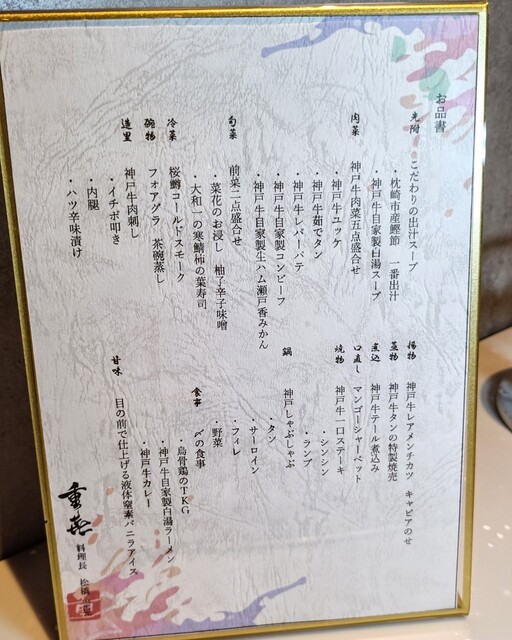 お品書
先附
こだわりの出汁スープ
・枕崎市産鰹節 一番出汁
・神戸牛自家製白湯スープ
肉菜
神戸牛肉菜五点盛合せ
・神戸牛ユッケ
・神戸牛茹でタン
・神戸牛レバーパテ
・神戸牛自家製コンビーフ
・神戸牛自家製生ハム瀬戸香みかん
旬菜
前菜二点盛合せ
・菜花のお浸し 柚子辛子味噌
・大和一の寒鯖柿の葉寿司
冷菜
桜鱒コールドスモーク
碗物
フォアグラ 茶碗蒸し
造里
神戸牛肉刺し
・イチボ叩き
・内腿
・ハツ辛味漬け
揚物
神戸牛レアメンチカツ キャビアのせ
蒸物
神戸牛タンの特製焼売
煮込
神戸牛テール煮込み
口直し
マンゴーシャーベット
焼物
神戸牛一口ステーキ
・シンシン
・ランプ
鍋
神戸しゃぶしゃぶ
・タン
・サーロイン
・フィレ
・野菜
食事
〆の食事
・烏骨鶏のTKG
・神戸牛自家製白湯ラーメン
・神戸牛カレー
甘味
目の前で仕上げる液体窒素バニラアイス
料理長 松橋